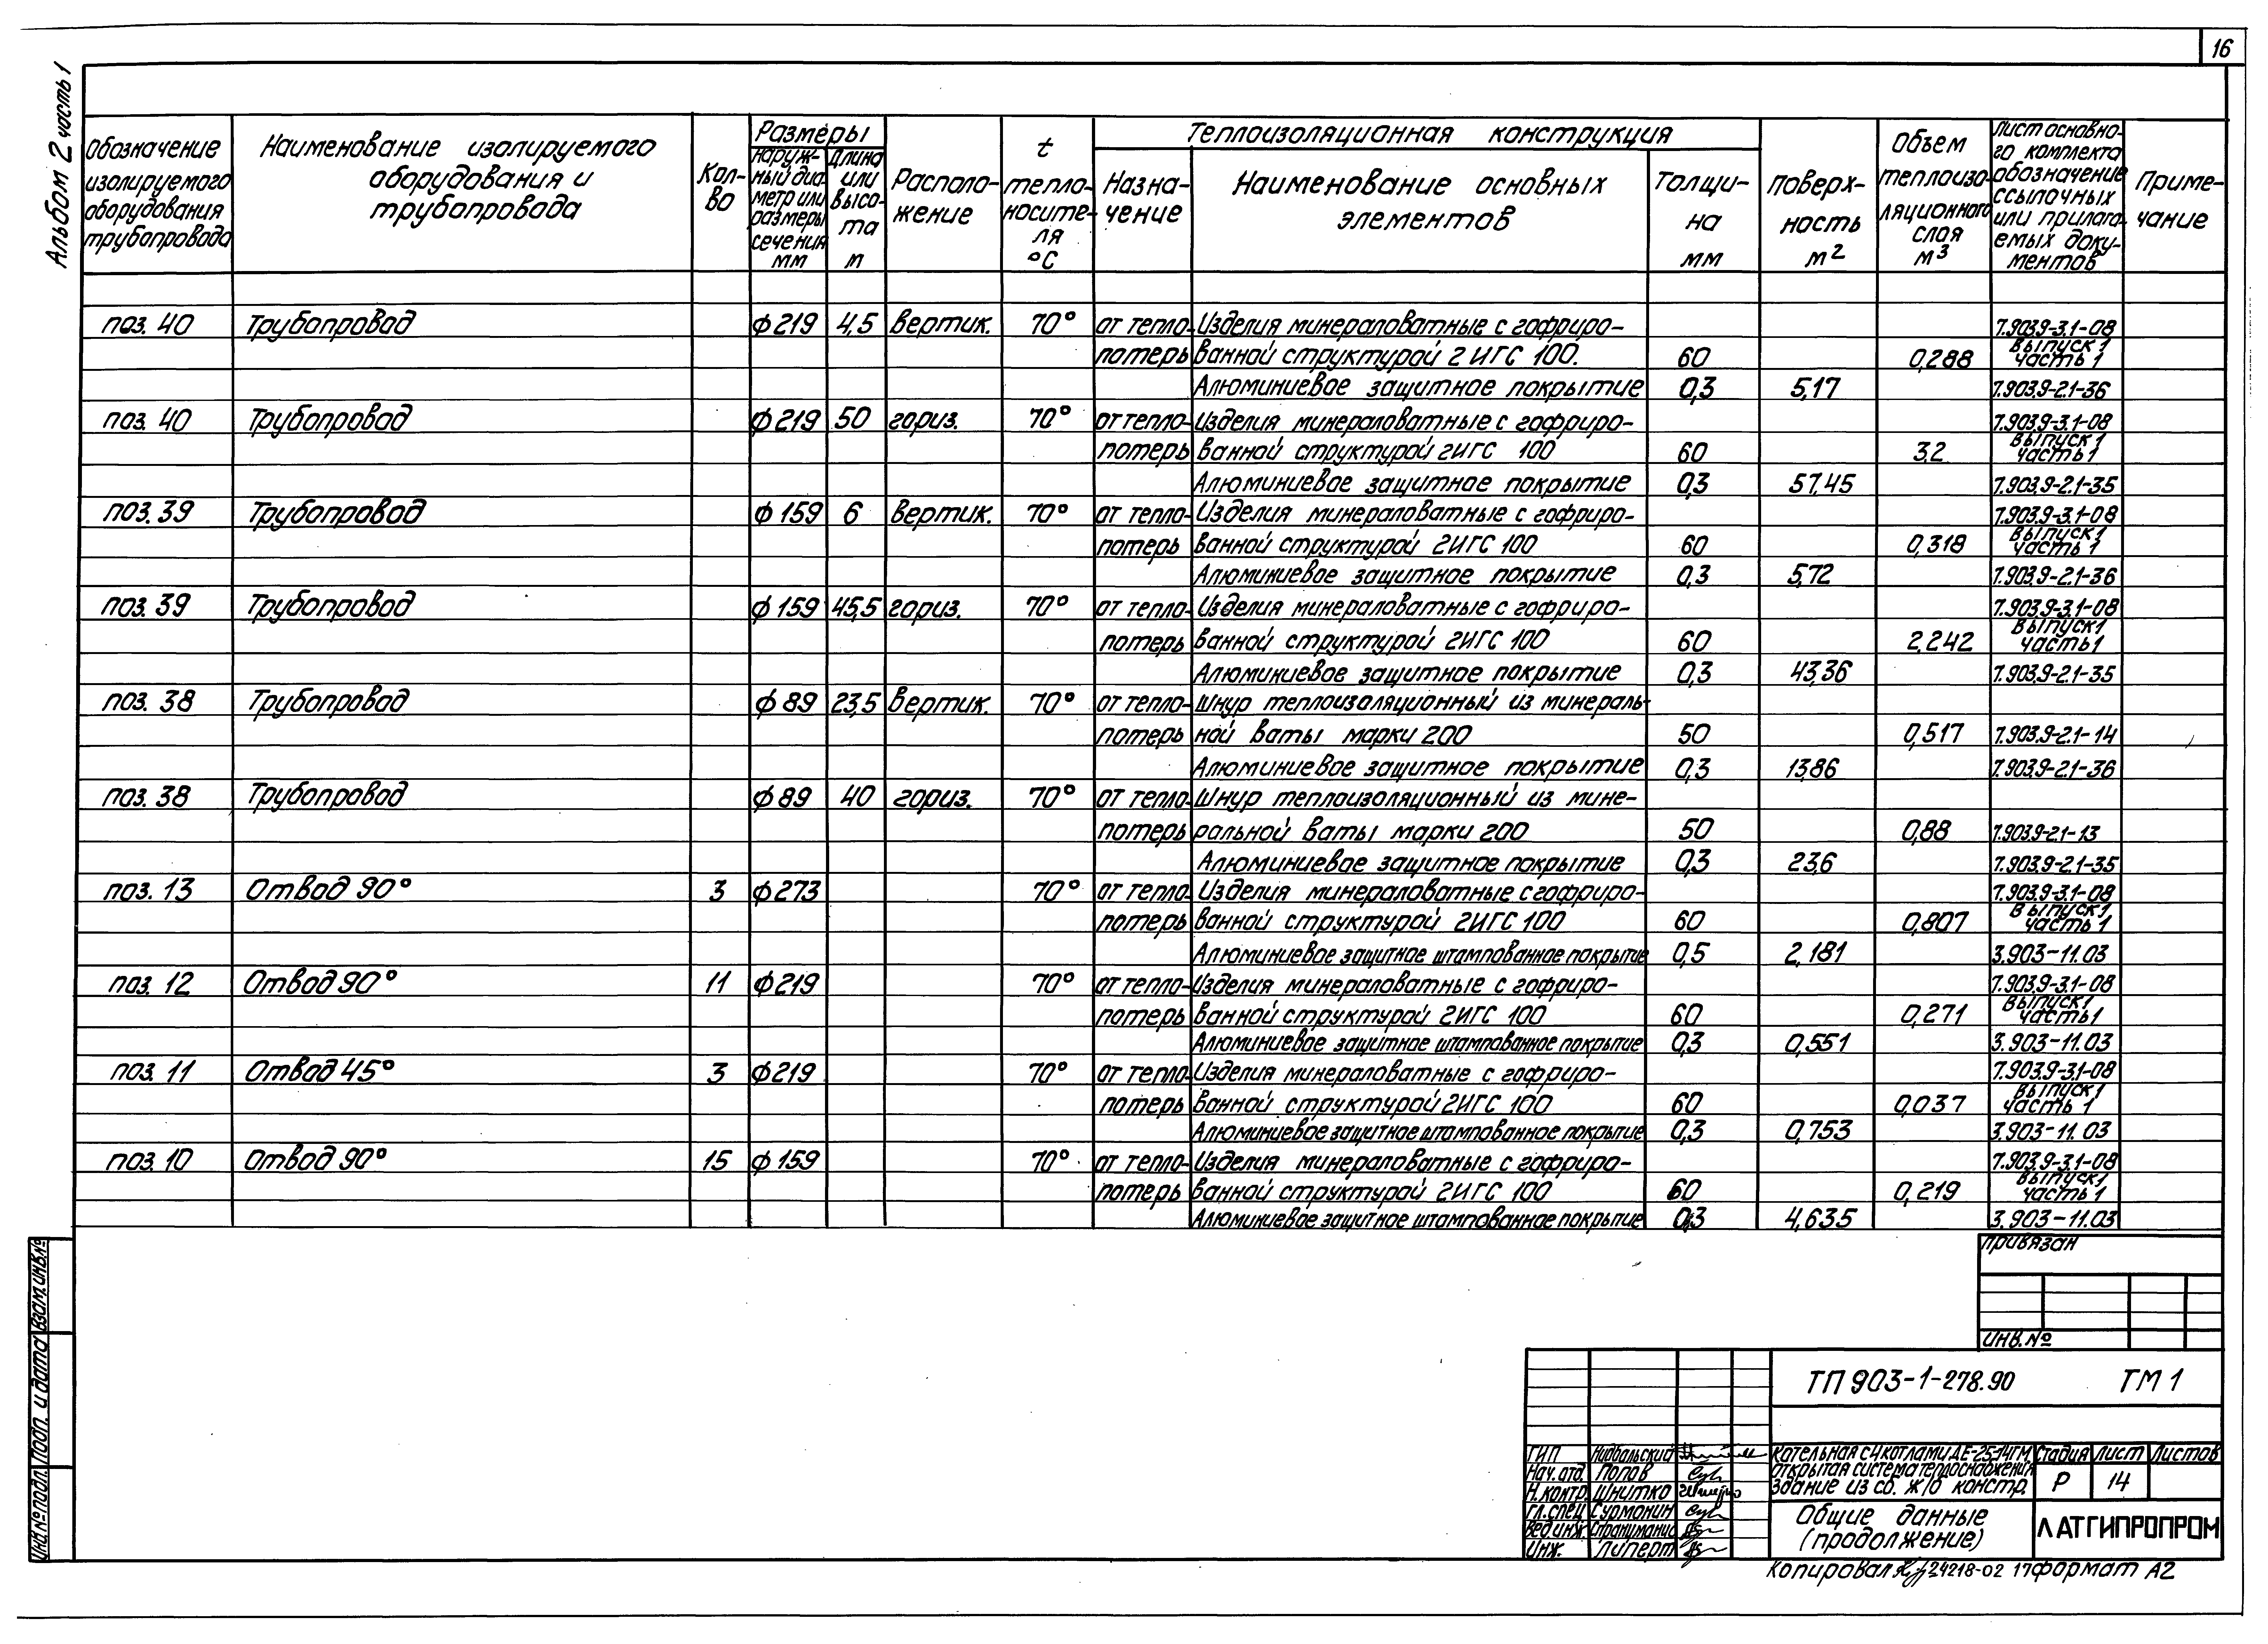 16
Альбом 2 часть 1
Обозначение изолируемого оборудования трубопровода
Наименование изолируемого оборудования и трубопровода
Кол-во
Размеры
наруж-ный диа-метр или размеры сечения мм
длина или высо-та м
Располо-жение
t тепло-носите-ля °С
Теплоизоляционная конструкция
Назна-чение
Наименование основных элементов
Толщи-на мм
Поверх-ность м²
Объем теплоизо-ляционного слоя м³
Лист основно-го комплекта обозначение ссылочных или прилага-емых доку-ментов
Приме-чание
поз. 40 Трубопровод ф219 4,5 вертик. 70° от тепло- Изделия минераловатные с гофриро- 7.903.9-3.1-08
потерь ванной структурой 2ИГС 100. 60 0,288 выпуск 1 часть 1
Алюминиевое защитное покрытие 0,3 5,17 7.903.9-2.1-36
поз. 40 Трубопровод ф219 50 гориз. 70° от тепло- Изделия минераловатные с гофриро- 7.903.9-3.1-08
потерь ванной структурой 2ИГС 100 60 3,2 выпуск 1 часть 1
Алюминиевое защитное покрытие 0,3 57,45 7.903.9-2.1-35
поз. 39 Трубопровод ф159 6 вертик. 70° от тепло- Изделия минераловатные с гофриро- 7.903.9-3.1-08
потерь ванной структурой 2ИГС 100 60 0,318 выпуск 1 часть 1
Алюминиевое защитное покрытие 0,3 5,72 7.903.9-2.1-36
поз. 39 Трубопровод ф159 45,5 гориз. 70° от тепло- Изделия минераловатные с гофриро- 7.903.9-3.1-08
потерь ванной структурой 2ИГС 100 60 2,242 выпуск 1 часть 1
Алюминиевое защитное покрытие 0,3 43,36 7.903.9-2.1-35
поз. 38 Трубопровод ф89 23,5 вертик. 70° от тепло- Шнур теплоизоляционный из минераль-
потерь ной ваты марки 200 50 0,517 7.903.9-2.1-14
Алюминиевое защитное покрытие 0,3 13,86 7.903.9-2.1-36
поз. 38 Трубопровод ф89 40 гориз. 70° от тепло- Шнур теплоизоляционный из мине-
потерь ральной ваты марки 200 50 0,88 7.903.9-2.1-13
Алюминиевое защитное покрытие 0,3 23,6 7.903.9-2.1-35
поз. 13 Отвод 90° 3 ф273 70° от тепло- Изделия минераловатные с гофриро- 7.903.9-3.1-08
потерь ванной структурой 2ИГС 100 60 0,807 выпуск 1 часть 1
Алюминиевое защитное штампованное покрытие 0,5 2,181 3.903-11.03
поз. 12 Отвод 90° 11 ф219 70° от тепло- Изделия минераловатные с гофриро- 7.903.9-3.1-08
потерь ванной структурой 2ИГС 100 60 0,271 выпуск 1 часть 1
Алюминиевое защитное штампованное покрытие 0,3 0,551 3.903-11.03
поз. 11 Отвод 45° 3 ф219 70° от тепло- Изделия минераловатные с гофриро- 7.903.9-3.1-08
потерь ванной структурой 2ИГС 100 60 0,037 выпуск 1 часть 1
Алюминиевое защитное штампованное покрытие 0,3 0,753 3.903-11.03
поз. 10 Отвод 90° 15 ф159 70° от тепло- Изделия минераловатные с гофриро- 7.903.9-3.1-08
потерь ванной структурой 2ИГС 100 60 0,219 выпуск 1 часть 1
Алюминиевое защитное штампованное покрытие 0,3 4,635 3.903-11.03
Привязан
Инв.№
ТП 903-1-278.90 ТМ 1
ГИП
Нач.отд. Попов
Н.контр. Шнитко
Гл.спец Сурмонин
Вед.инж.
Инж. Липерт
Котельная с 4 котлами ДЕ-25-14ГМ,
Открытая система теплоснабжения
Здание из сб. ж/б констр.
Стадия Лист Листов
Р 14
Общие данные
(продолжение)
ЛАТГИПРОПРОМ
Копировал 24218-02 17 формат А2
Инв.№ подл. Подп. и дата Взам.инв.№